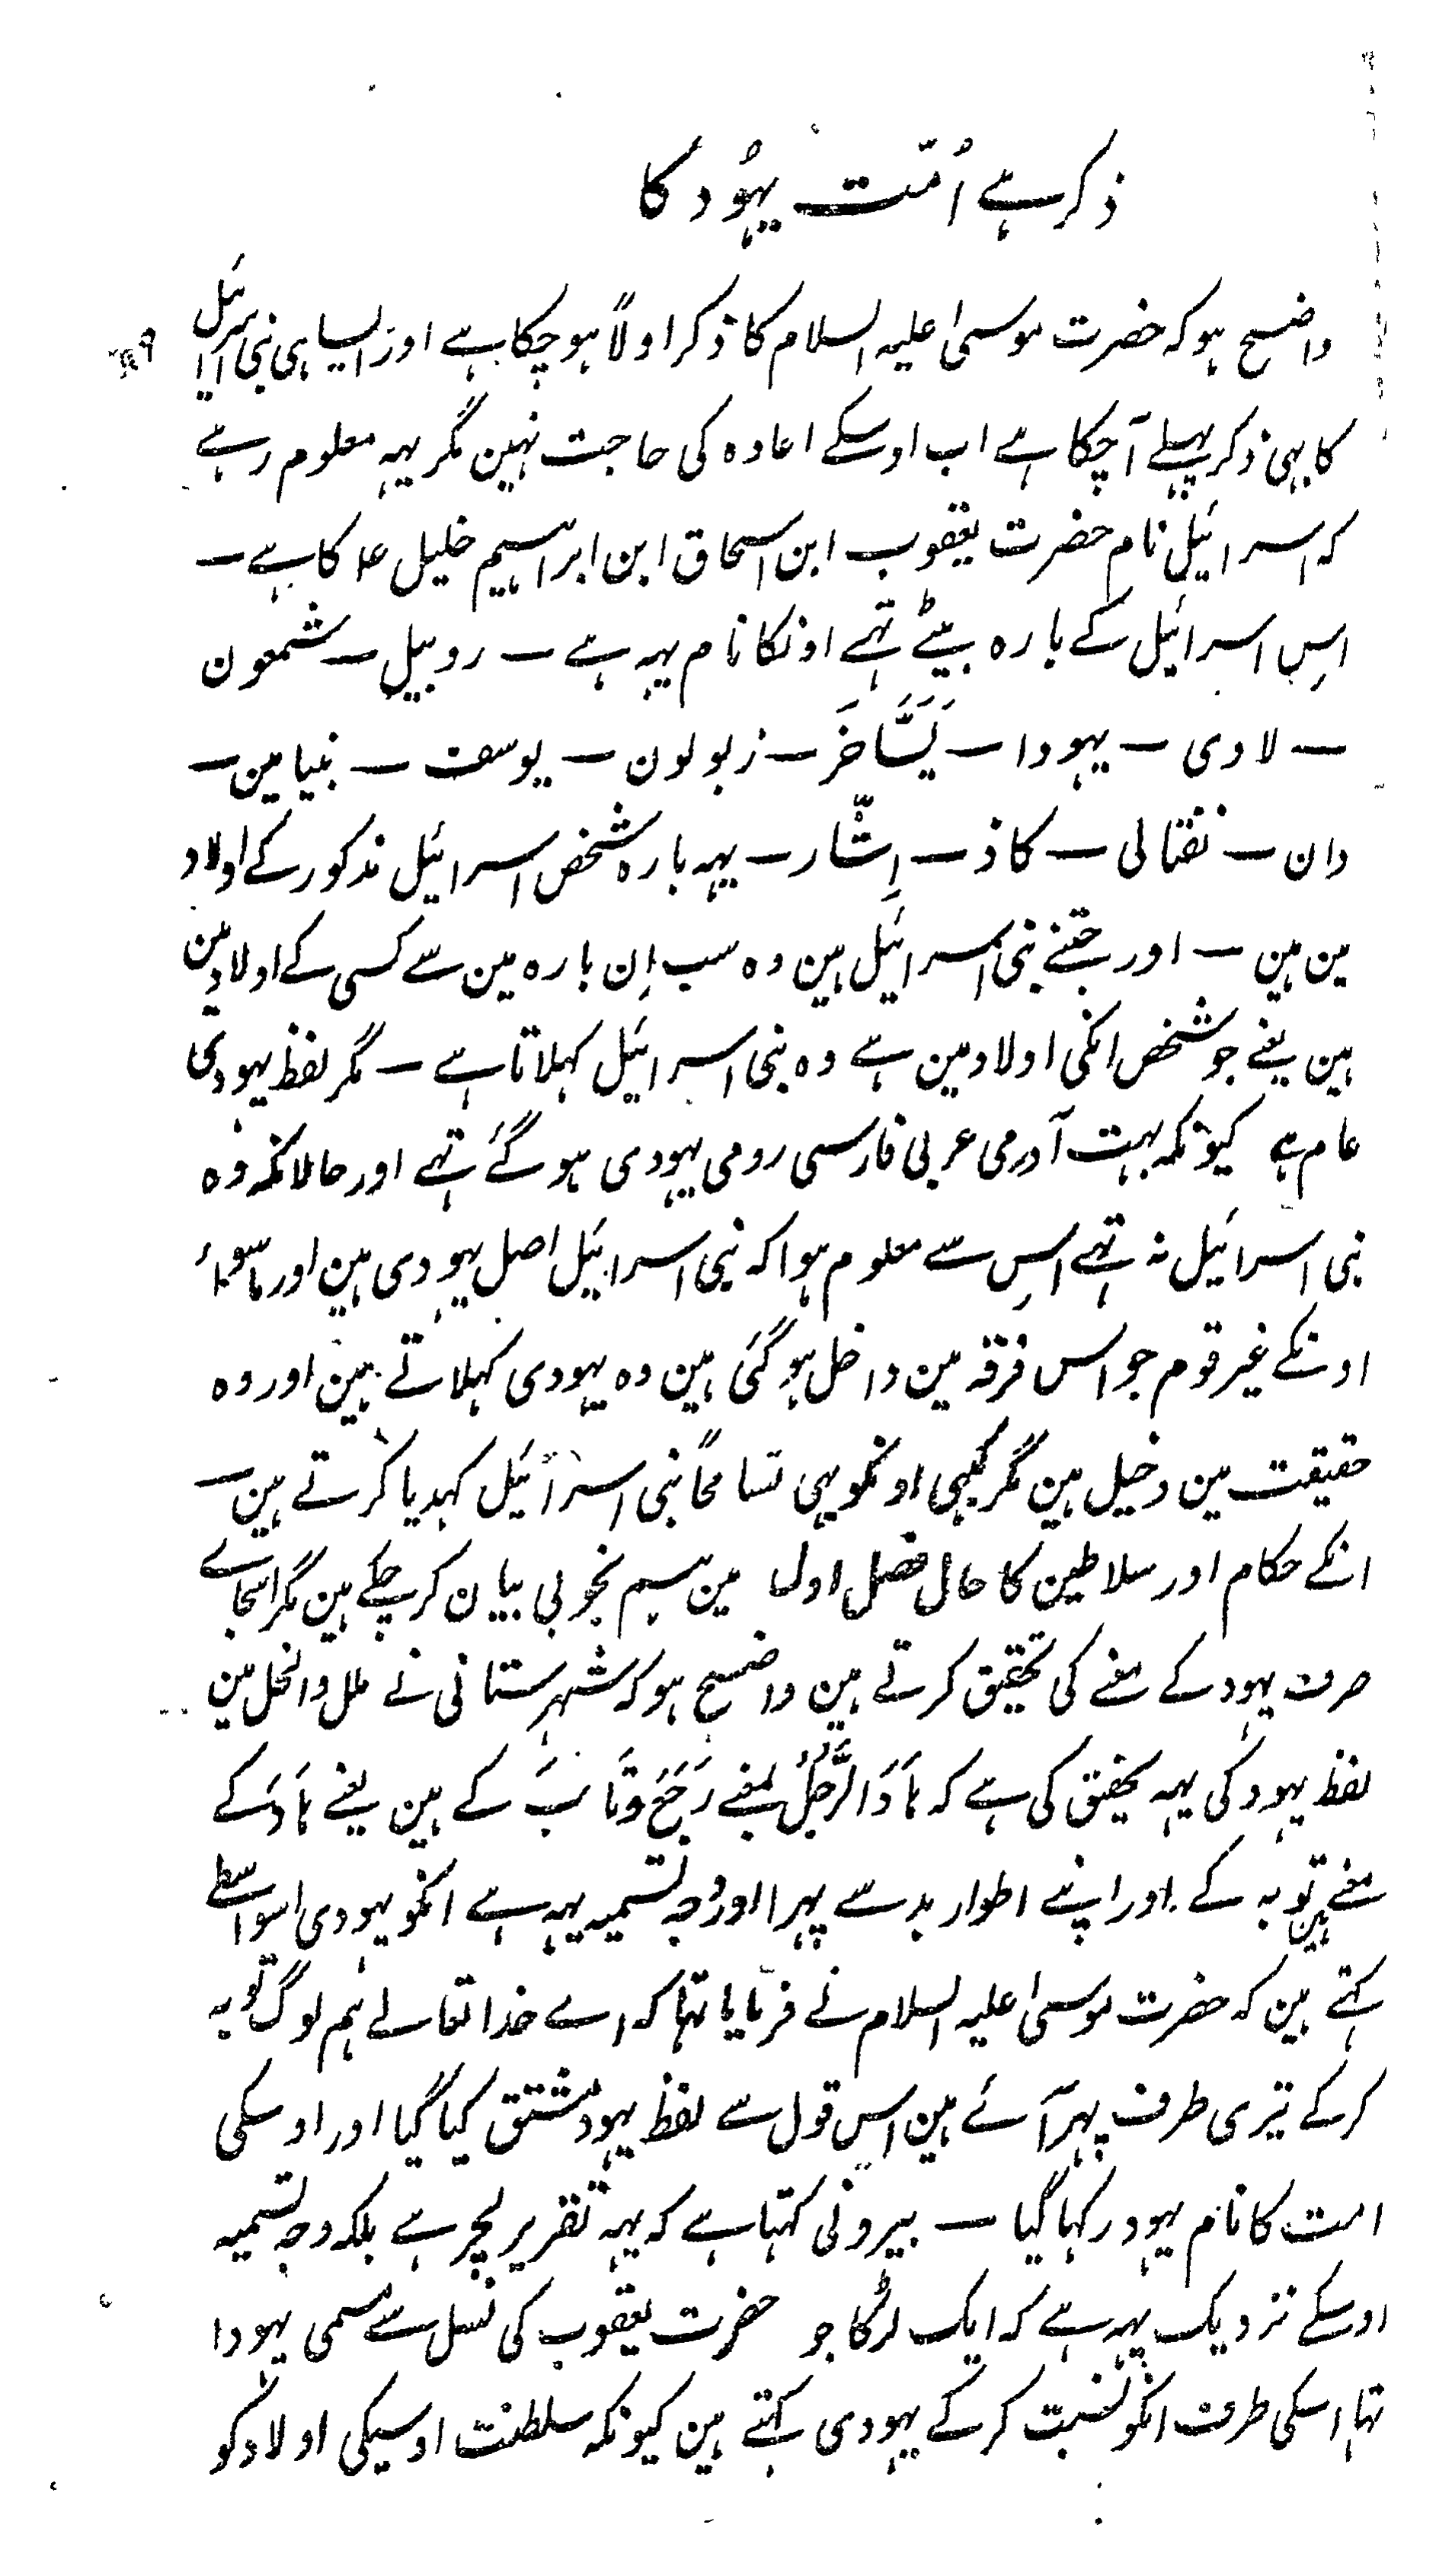 ذکر ہے اُمّت یہُود کا
واضح ہو کہ حضرت موسیٰ علیہ السلام کا ذکر اولاً ہو چکا ہے اور ایسا ہی بنی اسرائیل
کا بہی ذکر پہلے آچکا ہے اب اوسکے اعادہ کی حاجت نہین مگر یہہ معلوم رہے
کہ اسرائیل نام حضرت یعقوب ابن اسحاق ابن ابراہیم خلیل ع کا ہے ــ
اِس اسرائیل کے بارہ بیٹے تہے اونکا نام یہہ ہے ــ روبیل ــ شمعون
ــ لاوی ــ یہودا ــ یَسَّاخَر ــ زبولون ــ یوسف ــ بنیامین ــ
دان ــ نفتالی ــ کاذ ــ اِشّار ــ یہہ بارہ شخص اسرائیل مذکور کے اولاد
مین ہین ــ اور جتنے بنی اسرائیل ہین وہ سب اِن بارہ مین سے کسی کے اولاد مین
ہین یعنے جو شخص انکی اولاد مین ہے وہ بنی اسرائیل کہلاتا ہے ــ مگر لفظ یہودی
عام ہے کیونکہ بہت آدمی عربی فارسی رومی یہودی ہو گئے تہے اور حالانکہ وہ
بنی اسرائیل نہ تہے اِس سے معلوم ہوا کہ بنی اسرائیل اصل یہودی ہین اور ماسواے
اونکے غیر قوم جو اس فرقہ مین داخل ہو گئی ہین وہ یہودی کہلاتے ہین اور وہ
حقیقت مین دخیل ہین مگر کبہی اونکو بہی تسامحاً بنی اسرائیل کہدیا کرتے ہین ــ
انکے حکام اور سلاطین کا حال فصل اول مین ہم بخوبی بیان کر چکے ہین مگر اسجاے
صرف یہود کے معنے کی تحقیق کرتے ہین واضح ہو کہ شہرستانی نے ملل والنحل مین
لفظ یہود کی یہہ تحقیق کی ہے کہ ہَادَ الرَّجُلُ بمعنے رَجَعَ وَتَابَ کے ہین یعنے ہَادَ کے
معنے توبہ کے ہین اور اپنے اطوار بد سے پہرا اور وجہ تسمیہ یہہ ہے انکو یہودی اسواسطے
کہتے ہین کہ حضرت موسیٰ علیہ السلام نے فرمایا تہا کہ اے خدا تعالے ہم لوگ توبہ
کر کے تیری طرف پہر آئے ہین اس قول سے لفظ یہود مشتق کیا گیا اور اوسکی
امت کا نام یہود رکہا گیا ــ بیرونی کہتا ہے کہ یہہ تقریر لچر ہے بلکہ وجہ تسمیہ
اوسکے نزدیک یہہ ہے کہ ایک لڑکا جو حضرت یعقوب کی نسل سے مسمی یہودا
تہا اسکی طرف انکو نسبت کر کے یہودی کہتے ہین کیونکہ سلطنت اوسیکی اولاد کو